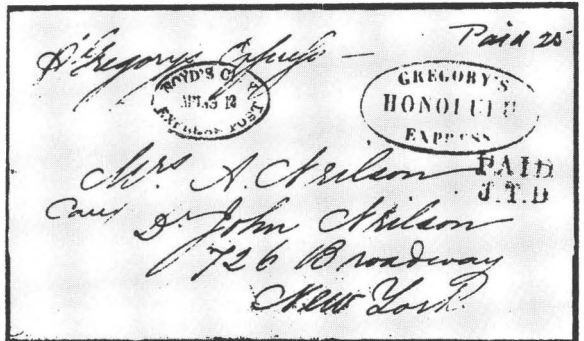 Paid 25
pr Gregorys Express —
BOYD'S CITY EXPRESS POST
GREGORY'S
HONOLULU
EXPRESS
PAID
J.T.D
Mrs A. Neilson
Care Dr John Neilson
726 Broadway
New York